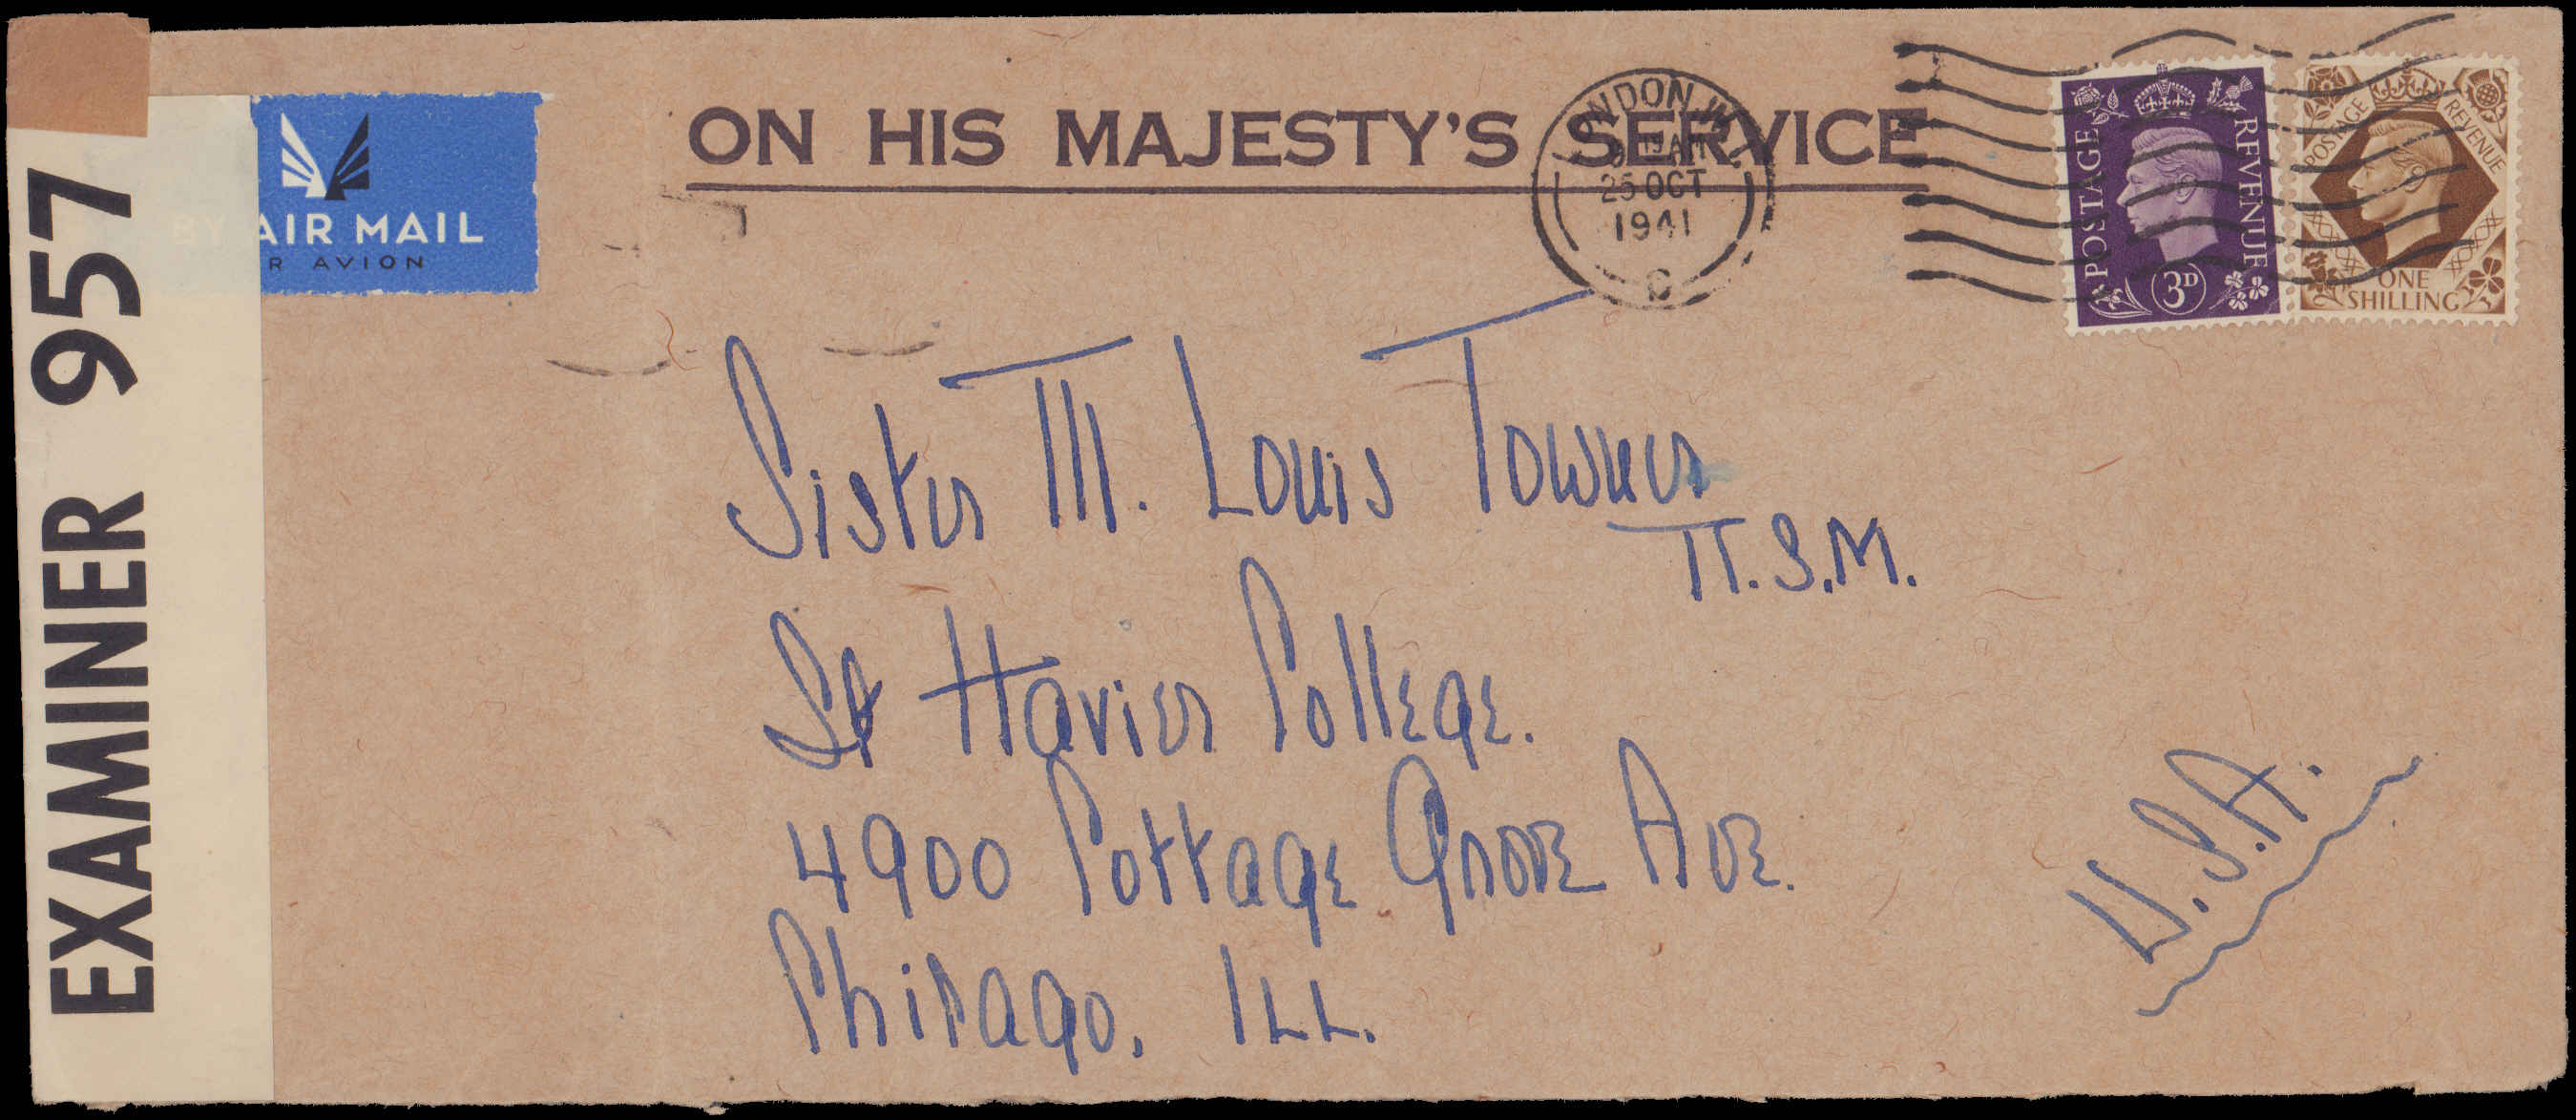 EXAMINER 957
BY AIR MAIL
R AVION
ON HIS MAJESTY'S SERVICE
LONDON
25 OCT
1941
C
POSTAGE REVENUE
3D
POSTAGE REVENUE
ONE
SHILLING
Sister M. Louis Towner
R.S.M.
St Xavier College.
4900 Cottage Grove Ave.
Chicago, ILL.
U.S.A.